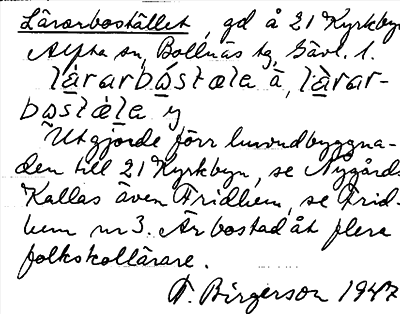 Lärarbostället, gd å 21 Kyrkbyn
Alfta sn, Bollnäs tg, Gävl. l.
lärarbåstæla ä, lärar-
bostæla y
Utgjorde förr huvudbyggna-
den till 21 Kyrkbyn, se Nygårds
Kallas även Fridhem, se Frid-
hem nr 3. Är bostad åt flera
folkskollärare.
F. Birgerson 1947